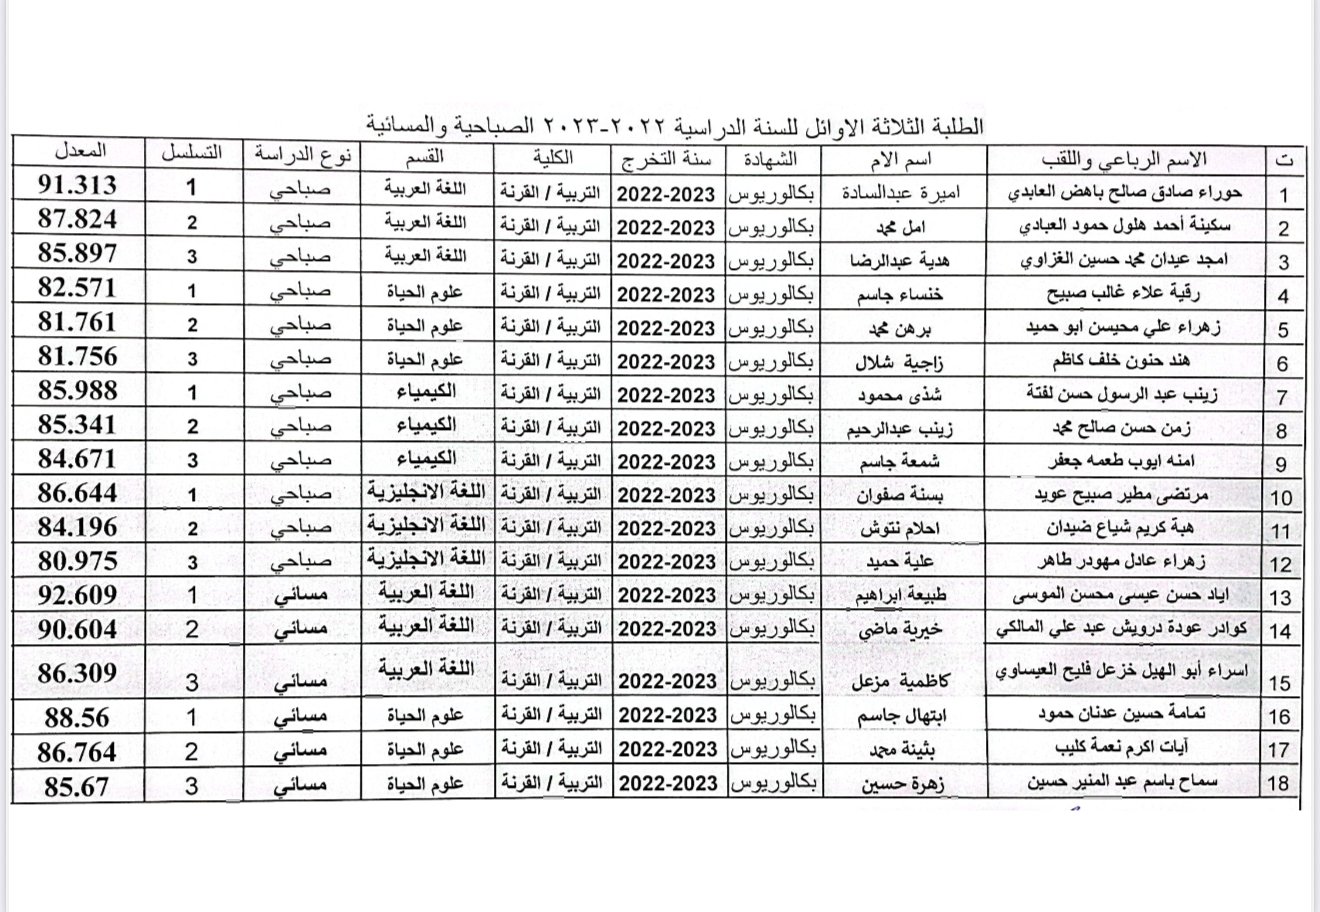 الطلبة الثلاثة الاوائل للسنة الدراسية ٢٠٢٢-٢٠٢٣ الصباحية والمسائية
ت الاسم الرباعي واللقب اسم الام الشهادة سنة التخرج الكلية القسم نوع الدراسة التسلسل المعدل
1 حوراء صادق صالح باهض العابدي اميرة عبدالسادة بكالوريوس 2022-2023 التربية / القرنة اللغة العربية صباحي 1 91.313
2 سكينة أحمد هلول حمود العبادي امل محمد بكالوريوس 2022-2023 التربية / القرنة اللغة العربية صباحي 2 87.824
3 امجد عيدان محمد حسين الغزاوي هدية عبدالرضا بكالوريوس 2022-2023 التربية / القرنة اللغة العربية صباحي 3 85.897
4 رقية علاء غالب صبيح خنساء جاسم بكالوريوس 2022-2023 التربية / القرنة علوم الحياة صباحي 1 82.571
5 زهراء علي محيسن ابو حميد برهن محمد بكالوريوس 2022-2023 التربية / القرنة علوم الحياة صباحي 2 81.761
6 هند حنون خلف كاظم زاجية شلال بكالوريوس 2022-2023 التربية / القرنة علوم الحياة صباحي 3 81.756
7 زينب عبد الرسول حسن لفتة شذى محمود بكالوريوس 2022-2023 التربية / القرنة الكيمياء صباحي 1 85.988
8 زمن حسن صالح محمد زينب عبدالرحيم بكالوريوس 2022-2023 التربية / القرنة الكيمياء صباحي 2 85.341
9 امنه ايوب طعمه جعفر شمعة جاسم بكالوريوس 2022-2023 التربية / القرنة الكيمياء صباحي 3 84.671
10 مرتضى مطير صبيح عويد بسنة صفوان بكالوريوس 2022-2023 التربية / القرنة اللغة الانجليزية صباحي 1 86.644
11 هبة كريم شياع ضيدان احلام نتوش بكالوريوس 2022-2023 التربية / القرنة اللغة الانجليزية صباحي 2 84.196
12 زهراء عادل مهودر طاهر علية حميد بكالوريوس 2022-2023 التربية / القرنة اللغة الانجليزية صباحي 3 80.975
13 اياد حسن عيسى محسن الموسى طبيعة ابراهيم بكالوريوس 2022-2023 التربية / القرنة اللغة العربية مسائي 1 92.609
14 كوادر عودة درويش عبد علي المالكي خيرية ماضي بكالوريوس 2022-2023 التربية / القرنة اللغة العربية مسائي 2 90.604
15 اسراء أبو الهيل خزعل فليح العيساوي كاظمية مزعل بكالوريوس 2022-2023 التربية / القرنة اللغة العربية مسائي 3 86.309
16 تمامة حسين عدنان حمود ابتهال جاسم بكالوريوس 2022-2023 التربية / القرنة علوم الحياة مسائي 1 88.56
17 آيات اكرم نعمة كليب بثينة محمد بكالوريوس 2022-2023 التربية / القرنة علوم الحياة مسائي 2 86.764
18 سماح باسم عبد المنير حسين زهرة حسين بكالوريوس 2022-2023 التربية / القرنة علوم الحياة مسائي 3 85.67